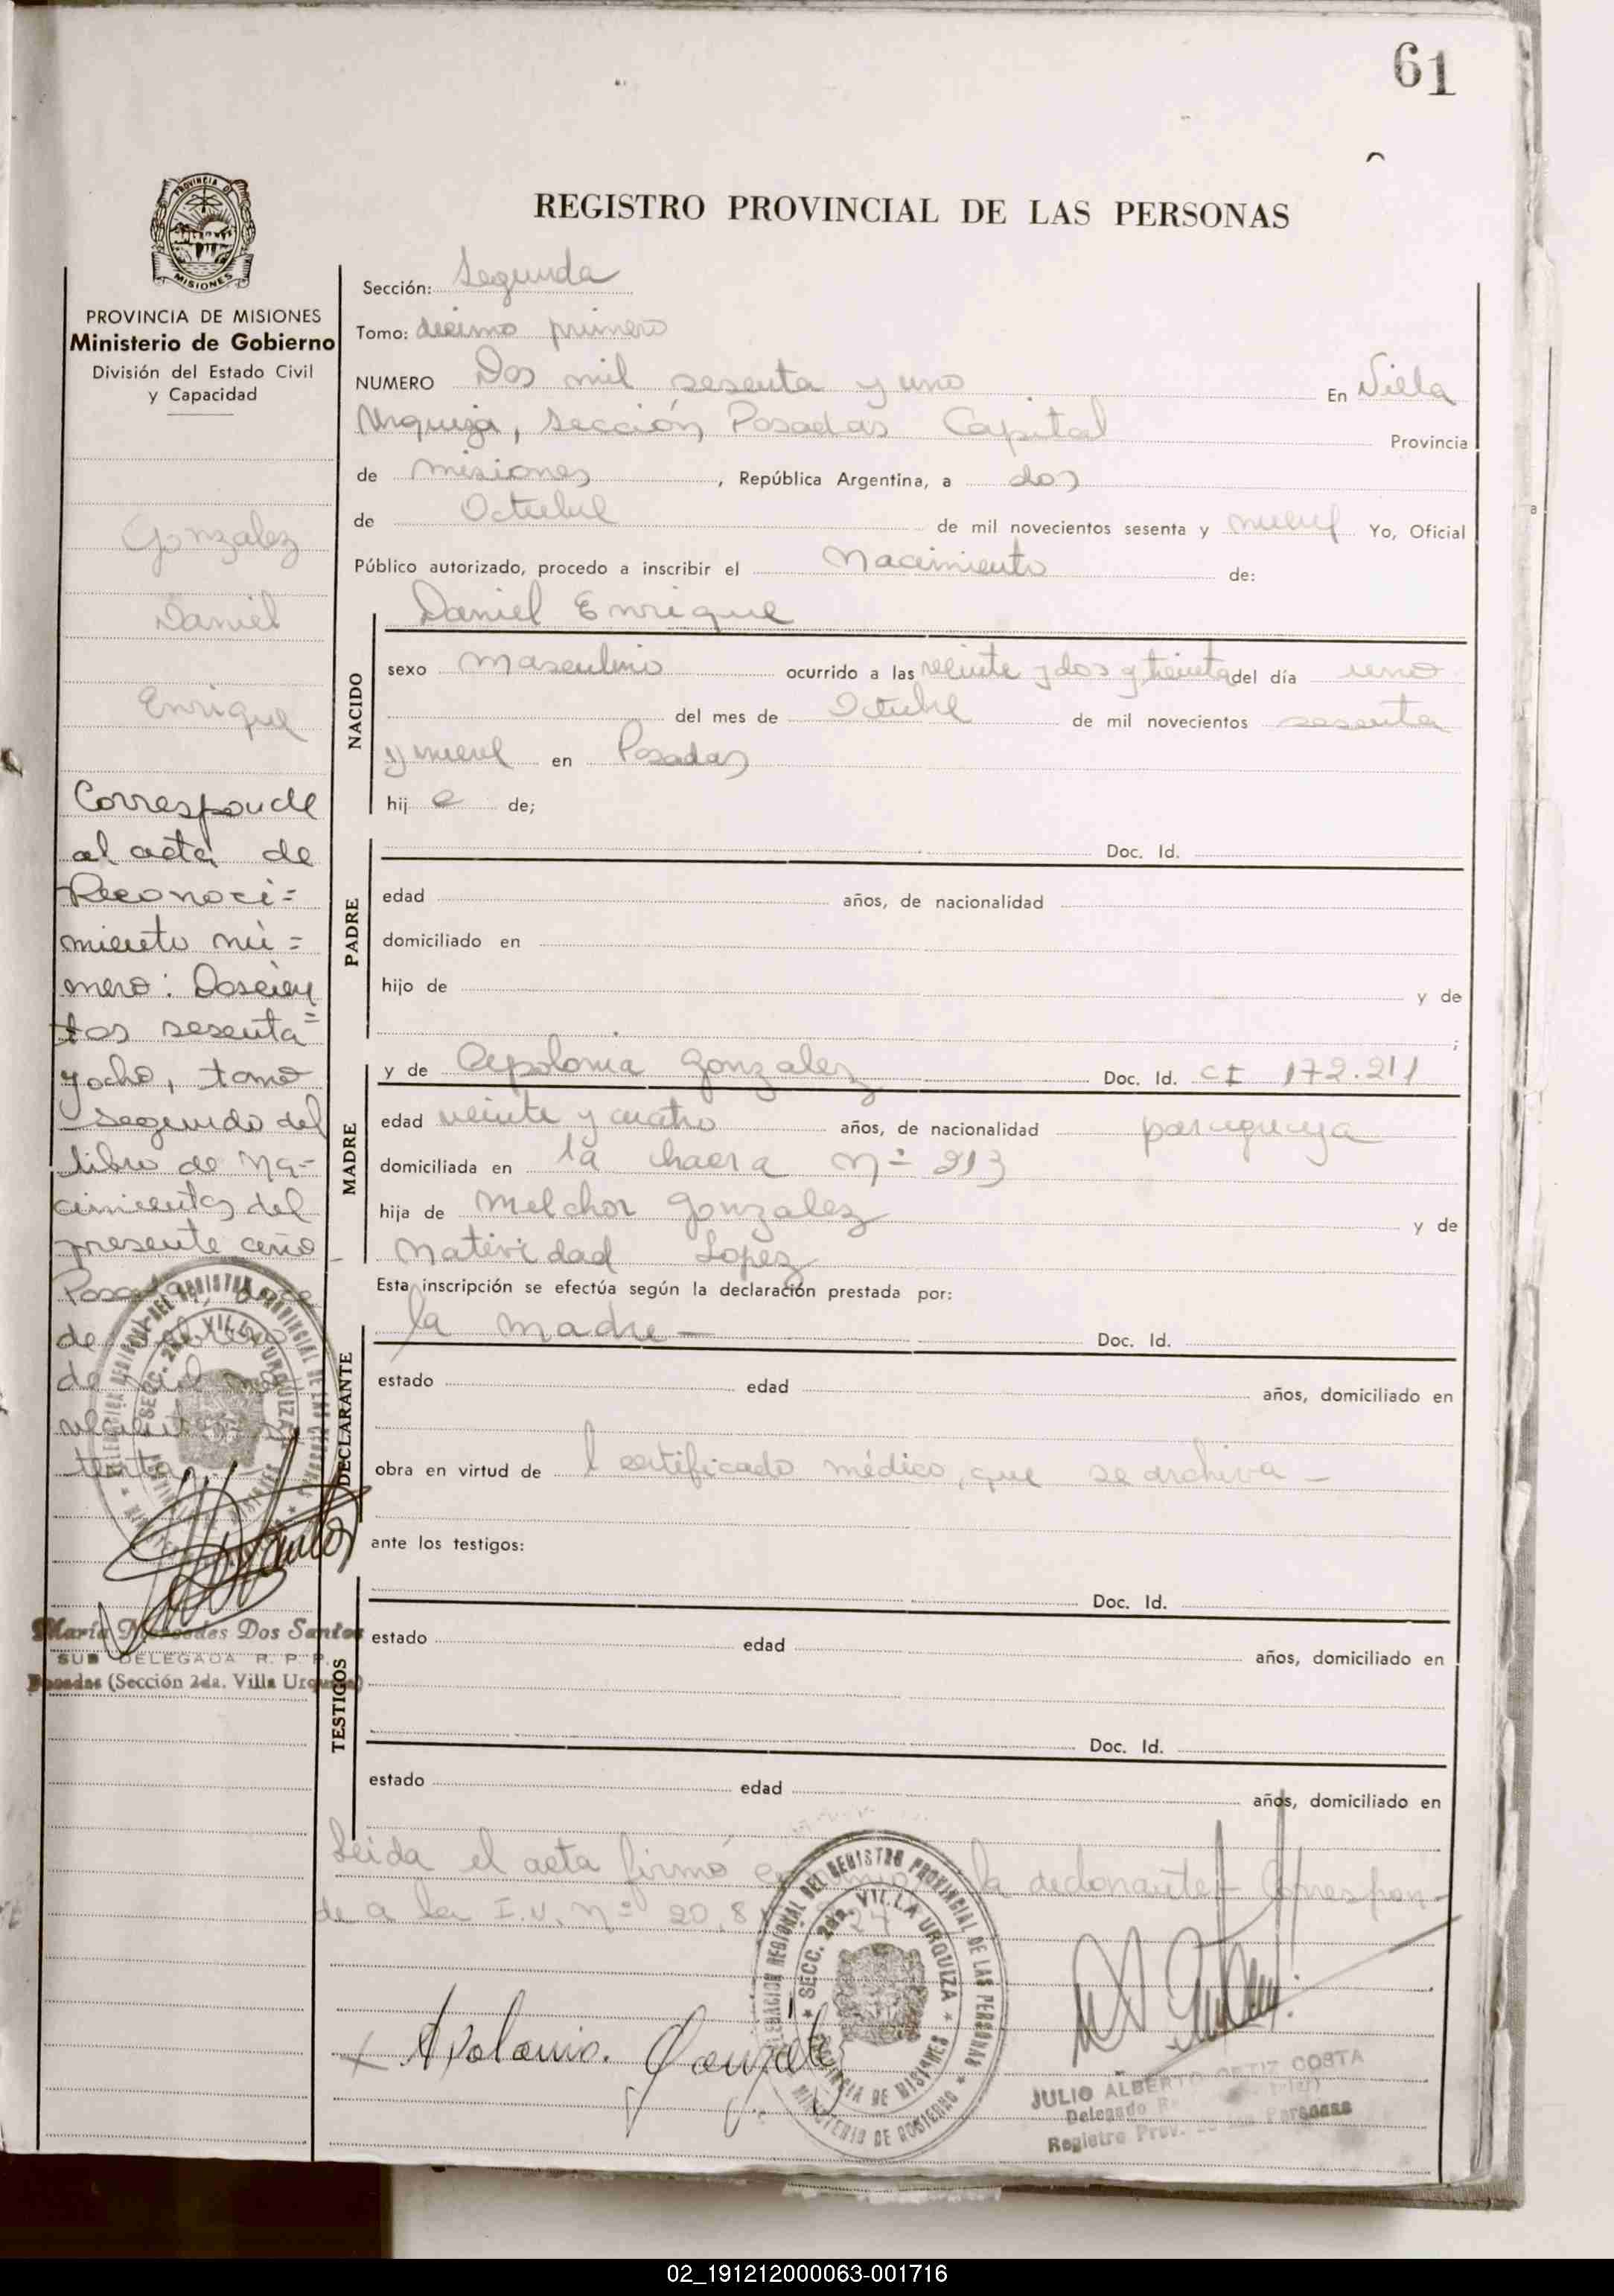 61
REGISTRO PROVINCIAL DE LAS PERSONAS
PROVINCIA DE MISIONES
PROVINCIA DE MISIONES
Ministerio de Gobierno
División del Estado Civil
y Capacidad
Gonzalez
Daniel
Enrique
Corresponde
al acta de
Reconoci=
miento nú=
mero: Doscien
tos sesenta=
y ocho, tomo
segundo del
libro de Na-
cimientos del
presente año-
Posadas,
de
de mil no
tenta
María Mercedes Dos Santos
SUB DELEGADA R. P. P.
Posadas (Sección 2da. Villa Urquiza)
Sección: Segunda
Tomo: décimo primero
NUMERO Dos mil sesenta y uno En Villa
Urquiza, Sección Posadas Capital Provincia
de Misiones, República Argentina, a dos
de Octubre de mil novecientos sesenta y nueve Yo, Oficial
Público autorizado, procedo a inscribir el Nacimiento de:
NACIDO
Daniel Enrique
sexo masculino ocurrido a las veinte y dos y treinta del día uno
del mes de Octubre de mil novecientos sesenta
y nueve en Posadas
hij o de;
PADRE
Doc. Id.
edad años, de nacionalidad
domiciliado en
hijo de y de
;
MADRE
y de Apolonia Gonzalez Doc. Id. CI 172.211
edad veinte y cuatro años, de nacionalidad paraguaya
domiciliada en la chacra Nº 213
hija de Melchor Gonzalez y de
Natividad Lopez
Esta inscripción se efectúa según la declaración prestada por:
DECLARANTE
la madre- Doc. Id.
estado edad años, domiciliado en
obra en virtud de l certificado médico, que se archiva-
ante los testigos:
TESTIGOS
Doc. Id.
estado edad años, domiciliado en
Doc. Id.
estado edad años, domiciliado en
Leida el acta firmó la declarante- Correspon-
de a la I.V. Nº 20.8
DELEGACION REGIONAL DEL REGISTRO PROVINCIAL DE LAS PERSONAS
SECC. 2da. VILLA URQUIZA
PROVINCIA DE MISIONES
MINISTERIO DE GOBIERNO
x Apolonia. Gonzalez
JULIO ALBERTO ORTIZ COSTA
Delegado
Registro Prov. de las Personas
02_191212000063-001716